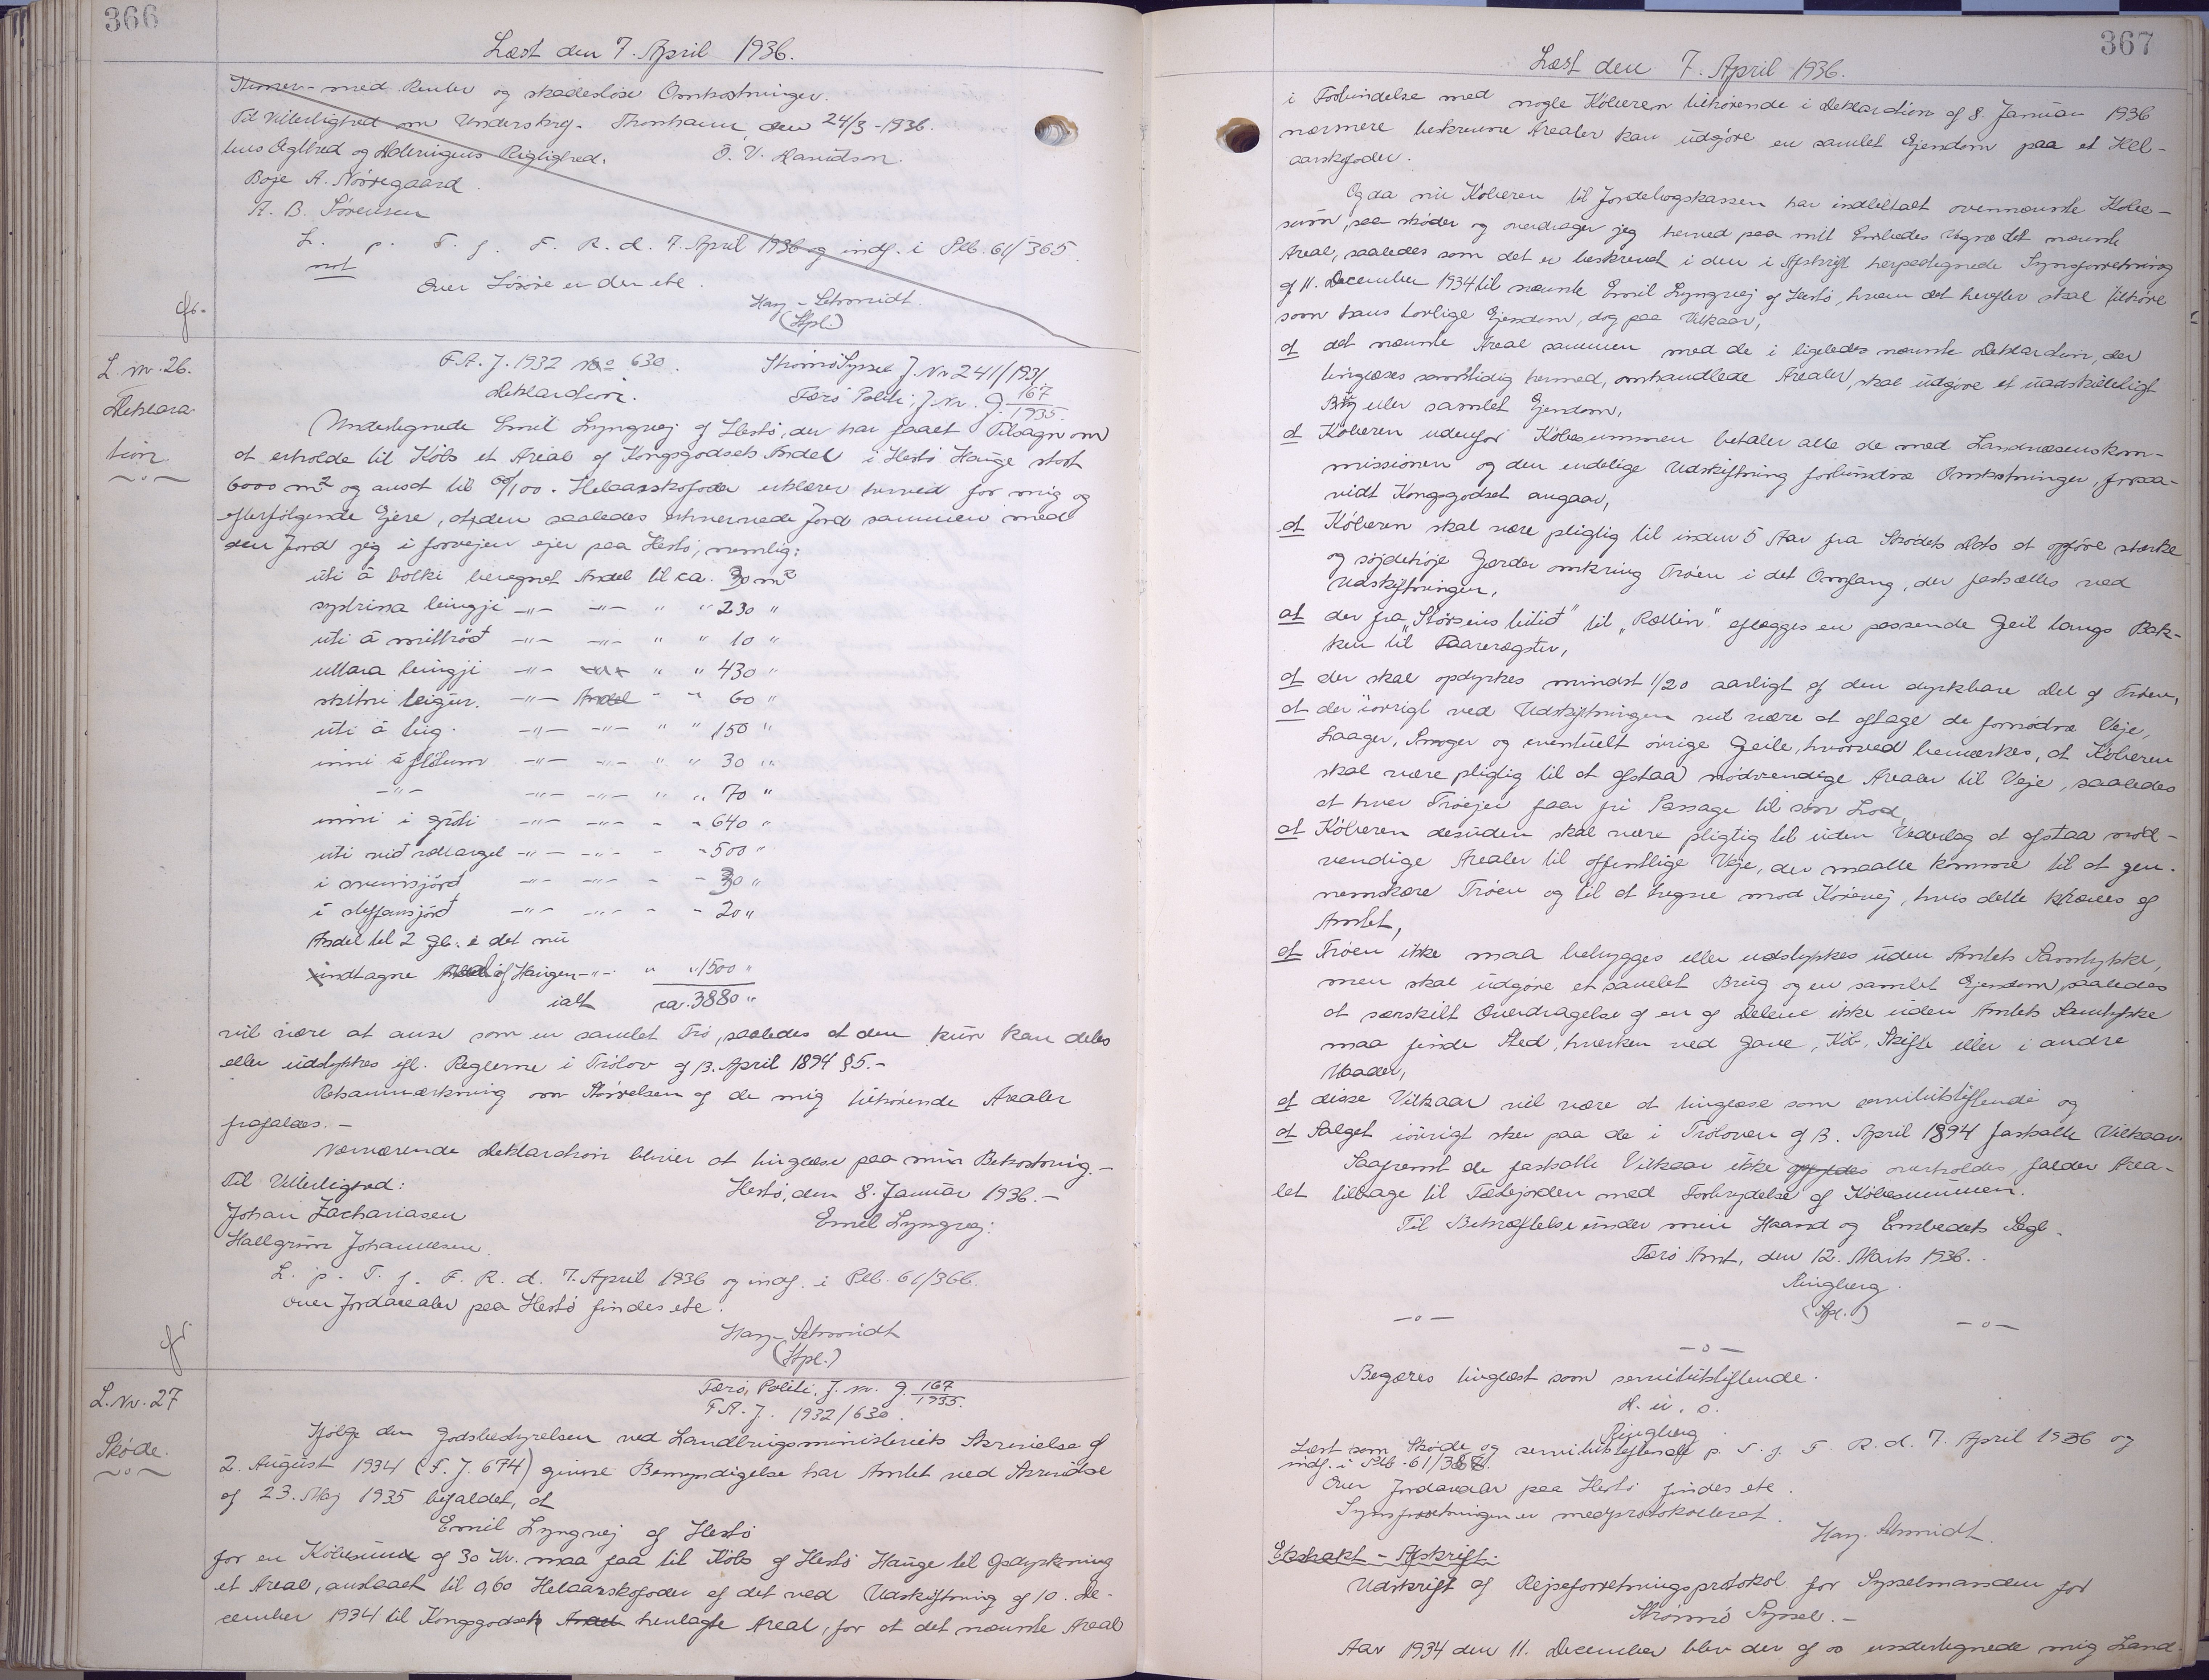 366
Læst den 7. April 1936.
Thomsen - med Renter og skadesløse Omkostninger.
Til Vitterlighed om Underskrif- Thorshavn, den 24/3-1936.
tens Ægthed og Dateringens Rigtighed. O. V. Davidson.
Boje A. Nørregaard.
A. B. Sørensen
L. p. T. f. F. R. d. 7. April 1936 og indf. i Plb. 61/365.
Over Löbne er der ete.
Harz-Schmidt
(Stpl.)
L. nr. 26.
Deklara-
tion.
F.A. J. 1932 No 630. Strömö Syssel J. Nr 241/1931
Deklaration. Færö Politi, J Nr. G 167/1935.
Undertegnede Emil Lyngvej af Hestö, der har faaet Tilsagn om
at erholde til Köbs et Areal af Kongsgodsets Andel i Hestö Hauge stort
6000 m² og ansat til 60/100. Helaarskofoder erklærer herved for mig og
efterfölgende Ejere, at den saaledes erhvervede Jord sammen med
den Jord jeg i forvejen ejer paa Hestö, nemlig:
úti á bölki beregnet Andel til ca. 30 m²
systrina leingji -"- -"- " " 230 "
úti á mittröð -"- -"- " " 10 "
uttara leingji -"- " " 430 "
skitni teigur. -"- Andel " " 60 "
úti á teig. -"- -"- " " 150 "
inni á fløtum -"- -"- " " 30 "
-"- -"- -"- " " 70 "
inni i gróti -"- -"- " " 640 "
uti við rættargel -"- -"- " " 500 "
i sveinsjörð -"- -"- " " 30 "
i steffansjörð -"- -"- " " 20 "
Andel til 2 Gl. i det nu
indtagne Areal af Haugen -"- " " 1500 "
ialt ca. 3880 "
vil være at anse som en samlet Trö, saaledes at den kun kan deles
eller udstykkes ifl. Reglerne i Trölov af 13. April 1894 § 5.-
Retsanmærkning om Störrelsen af de mig tilhörende Arealer
frafaldes.-
Nærværende Deklaration bliver at tinglæse paa min Bekostning.-
Til Vitterlighed: Hestö, den 8. Januar 1936.-
Johan Zachariasen Emil Lyngvej:
Hallgrim Johannesen.
L. p. T. f. F. R. d. 7. April 1936 og indf. i Plb. 61/366.
Over Jordarealer paa Hestö findes ete.
Harz-Schmidt
(Stpl.)
L. Nr. 27
Skøde.
Færö, Politi, J. nr. G. 167/1935.
F.A. J. 1932/630.
Ifølge den Godsbestyrelsen ved Landbrugsministeriets Skrivelse af
2. August 1934 (F. J. 674) givne Bemyndigelse har Amtet ved Skrivelse
af 23. Maj 1935 bifaldet, at
Emil Lyngvej af Hestö
for en Köbesum af 30 Kr. maa faa til Köbs af Hestö Hauge til Opdyrkning
et Areal, anslaaet til 0,60 Helaarskofoder af det ved Udskiftning af 10. De-
cember 1934 til Kongsgodset henlagte Areal, for at det nævnte Areal
367
Læst den 7. April 1936.
i Forbindelse med nogle Köberen tilhörende i Deklaration af 8. Januar 1936
nærmere beskrevne Arealer kan udgöre en samlet Ejendom paa et Hel-
aarskofoder.
Og da nu Köberen til Jordebogskassen har indbetalt ovennævnte Köbe-
sum, saa sköder og overdrager jeg herved paa mit Embedes Vegne det nævnte
Areal, saaledes som det er beskrevet i den i Afskrift herpaategnede Synsforretning
af 11. December 1934 til nævnte Emil Lyngvej af Hestö, hvem det herefter skal tilhöre
som hans lovlige Ejendom, dog paa Vilkaar,
at det nævnte Areal sammen med de i ligeledes nævnte Deklaration, der
tinglæses samtidig hermed, omhandlede Arealer, skal udgöre et uadskilleligt
Brug eller samlet Ejendom,
at Köberen udenfor Köbesummen betaler alle de med Landvæsenskom-
missionen og den endelige Udskiftning forbundne Omkostninger, forsaa-
vidt Kongsgodset angaar,
at Köberen skal være pligtig til inden 5 Aar fra Skødets Dato at opföre stærke
og söjdehöje Gærder omkring Tröen i det Omfang, der fastsættes ved
Udskiftningen,
at der fra "Störsens litið" til "Rættin" aflægges en passende Geil langs Bak-
ken til Faarerögster,
at der skal opdyrkes mindst 1/20 aarligt af den dyrkbare Del af Tröen,
at der iövrigt ved Udskiftningen vil være at aftage de fornödne Veje,
Laager, Smoger og eventuelt övrige Geile, hvorved bemærkes, at Köberen
skal være pligtig til at afstaa nödvendige Arealer til Veje, saaledes
at hver Tröejer faar fri Passage til sin Lod,
at Köberen desuden skal være pligtig til uden Vederlag at afstaa nöd-
vendige Arealer til offentlige Veje, der maatte komme til at gen-
nemskære Tröen og til at hegne mod Körevej, hvis dette kræves af
Amtet,
at Tröen ikke maa bebygges eller udstykkes uden Amtets Samtykke,
men skal udgöre et samlet Brug og en samlet Ejendom, saaledes
at særskilt Overdragelse af en af Delene ikke uden Amtets Samtykke
maa finde Sted, hverken ved Gave, Köb, Skifte eller i andre
Maader,
at disse Vilkaar vil være at tinglæse som servitutstiftende og
at Salget iövrigt sker paa de i Tröloven af 13. April 1894 fastsatte Vilkaar.
Saafremt de fastsatte Vilkaar ikke opfyldes overholdes, falder Area-
let tilbage til Fæstejorden med Fortrydelse af Köbesummen.
Til Bekræftelse under min Haand og Embedets Segl.
Færö Amt, den 12. Marts 1936.
Ringberg.
(Stpl.)
-o- -o-
-o-
Begæres tinglæst som servitutstiftende.
D. u. s.
Ringberg
Læst som Sköde og servitutstiftende p. T. f. F. R. d. 7. April 1936 og
indf. i Plb. 61/367.
Over Jordarealer paa Hestö findes ete.
Synsforretningen er medprotokolleret.
Harz-Schmidt.
Ekstrakt-Afskrift.
Udskrift af Rejseforretningsprotokol for Sysselmanden for
Strömö Syssel.-
Aar 1934 den 11. December blev der af os undertegnede mig Land-